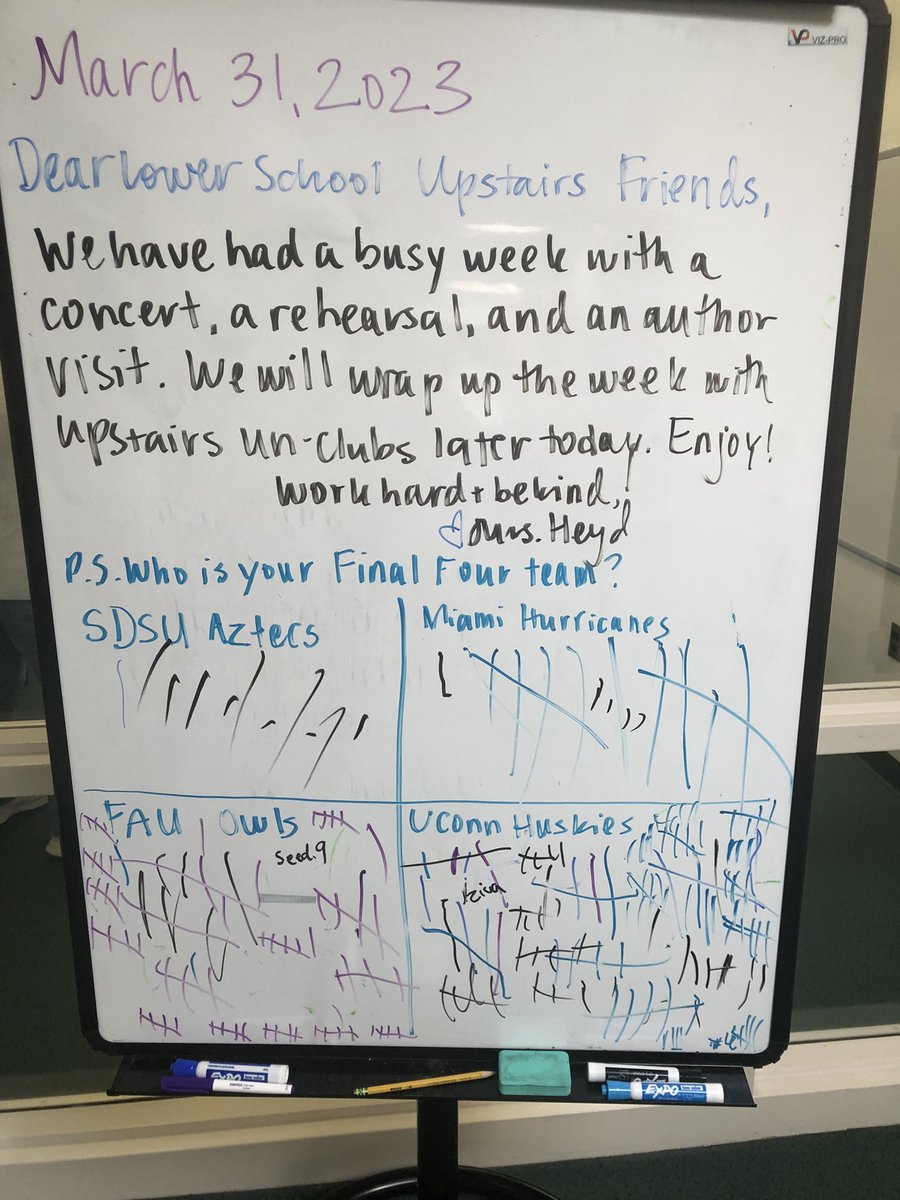 VP VIZ-PRO
March 31, 2023
Dear Lower School Upstairs Friends,
We have had a busy week with a
concert, a rehearsal, and an author
visit. We will wrap up the week with
upstairs un-clubs later today. Enjoy!
Work hard + be kind,
Mrs. Heyd
P.S. Who is your Final Four team?
SDSU Aztecs
Miami Hurricanes
FAU Owls
UConn Huskies
Seed.9
EXPO
EXPO